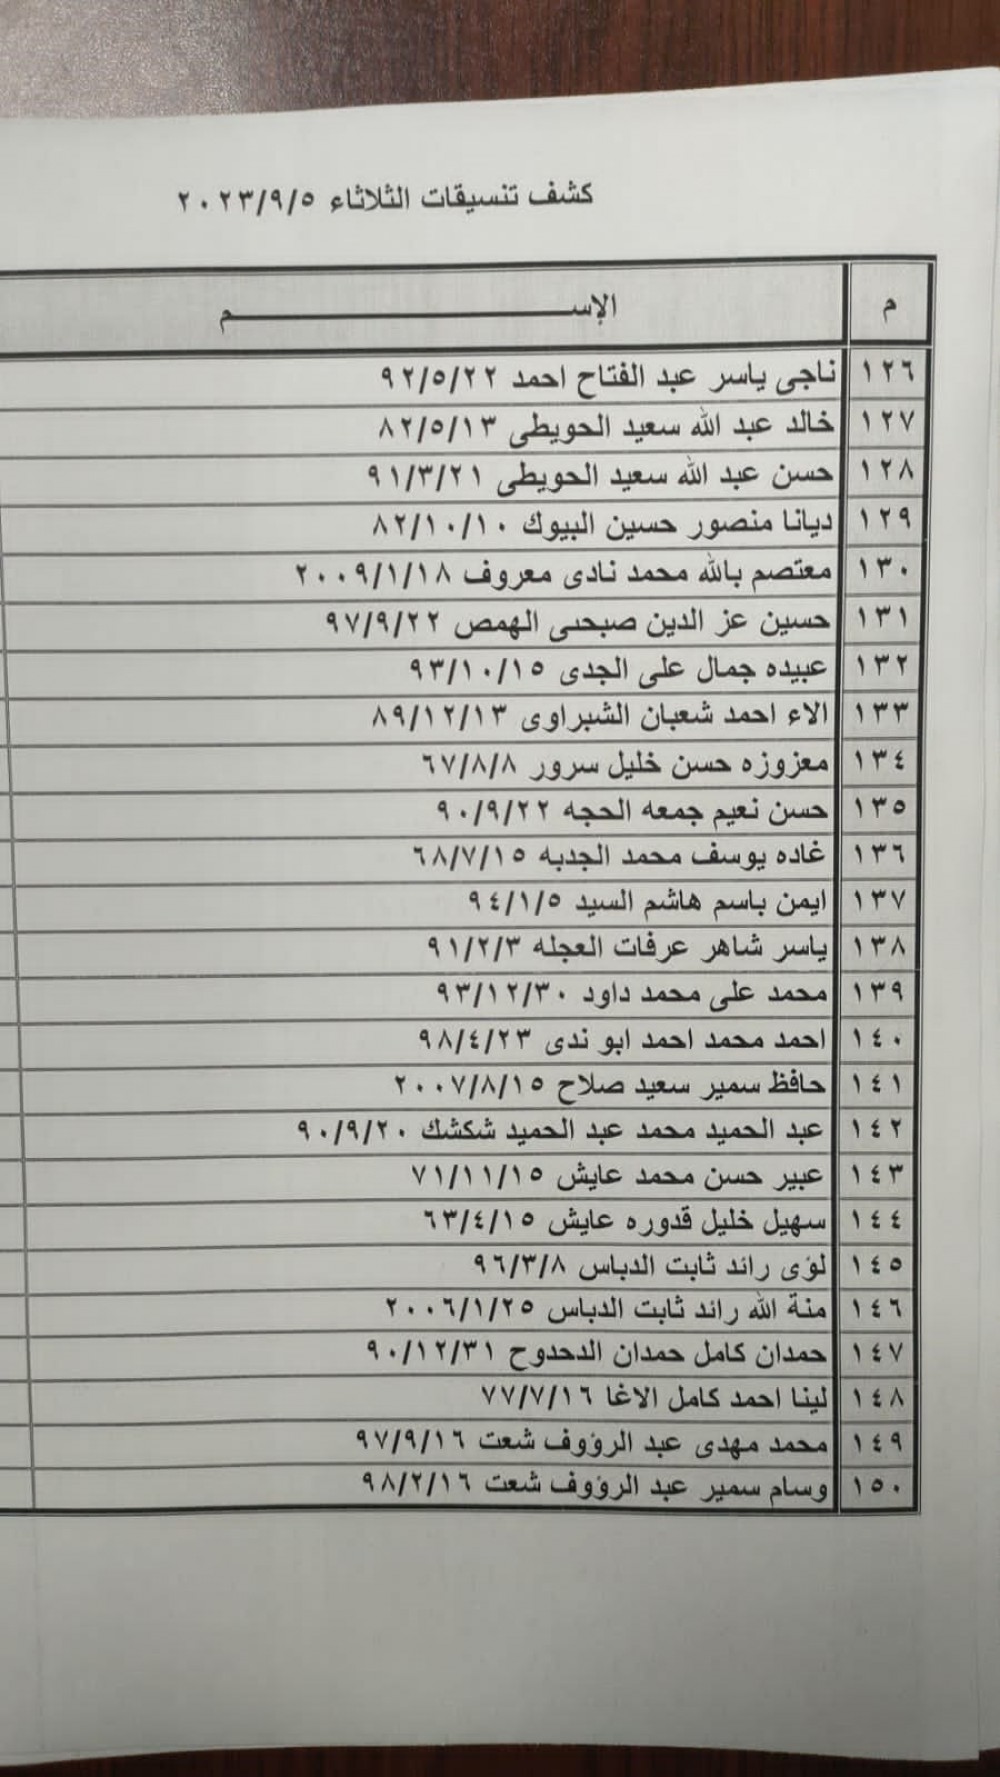 كشف تنسيقات الثلاثاء ٢٠٢٣/٩/٥
م الإســـــــــــــم
١٢٦ ناجى ياسر عبد الفتاح احمد ٩٢/٥/٢٢
١٢٧ خالد عبد الله سعيد الحويطى ٨٢/٥/١٣
١٢٨ حسن عبد الله سعيد الحويطى ٩١/٣/٢١
١٢٩ ديانا منصور حسين البيوك ٨٢/١٠/١٠
١٣٠ معتصم بالله محمد نادى معروف ٢٠٠٩/١/١٨
١٣١ حسين عز الدين صبحى الهمص ٩٧/٩/٢٢
١٣٢ عبيده جمال على الجدى ٩٣/١٠/١٥
١٣٣ الاء احمد شعبان الشبراوى ٨٩/١٢/١٣
١٣٤ معزوزه حسن خليل سرور ٦٧/٨/٨
١٣٥ حسن نعيم جمعه الحجه ٩٠/٩/٢٢
١٣٦ غاده يوسف محمد الجدبه ٦٨/٧/١٥
١٣٧ ايمن باسم هاشم السيد ٩٤/١/٥
١٣٨ ياسر شاهر عرفات العجله ٩١/٢/٣
١٣٩ محمد على محمد داود ٩٣/١٢/٣٠
١٤٠ احمد محمد احمد ابو ندى ٩٨/٤/٢٣
١٤١ حافظ سمير سعيد صلاح ٢٠٠٧/٨/١٥
١٤٢ عبد الحميد محمد عبد الحميد شكشك ٩٠/٩/٢٠
١٤٣ عبير حسن محمد عايش ٧١/١١/١٥
١٤٤ سهيل خليل قدوره عايش ٦٣/٤/١٥
١٤٥ لؤى رائد ثابت الدباس ٩٦/٣/٨
١٤٦ منة الله رائد ثابت الدباس ٢٠٠٦/١/٢٥
١٤٧ حمدان كامل حمدان الدحدوح ٩٠/١٢/٣١
١٤٨ لينا احمد كامل الاغا ٧٧/٧/١٦
١٤٩ محمد مهدى عبد الرؤوف شعت ٩٧/٩/١٦
١٥٠ وسام سمير عبد الرؤوف شعت ٩٨/٢/١٦